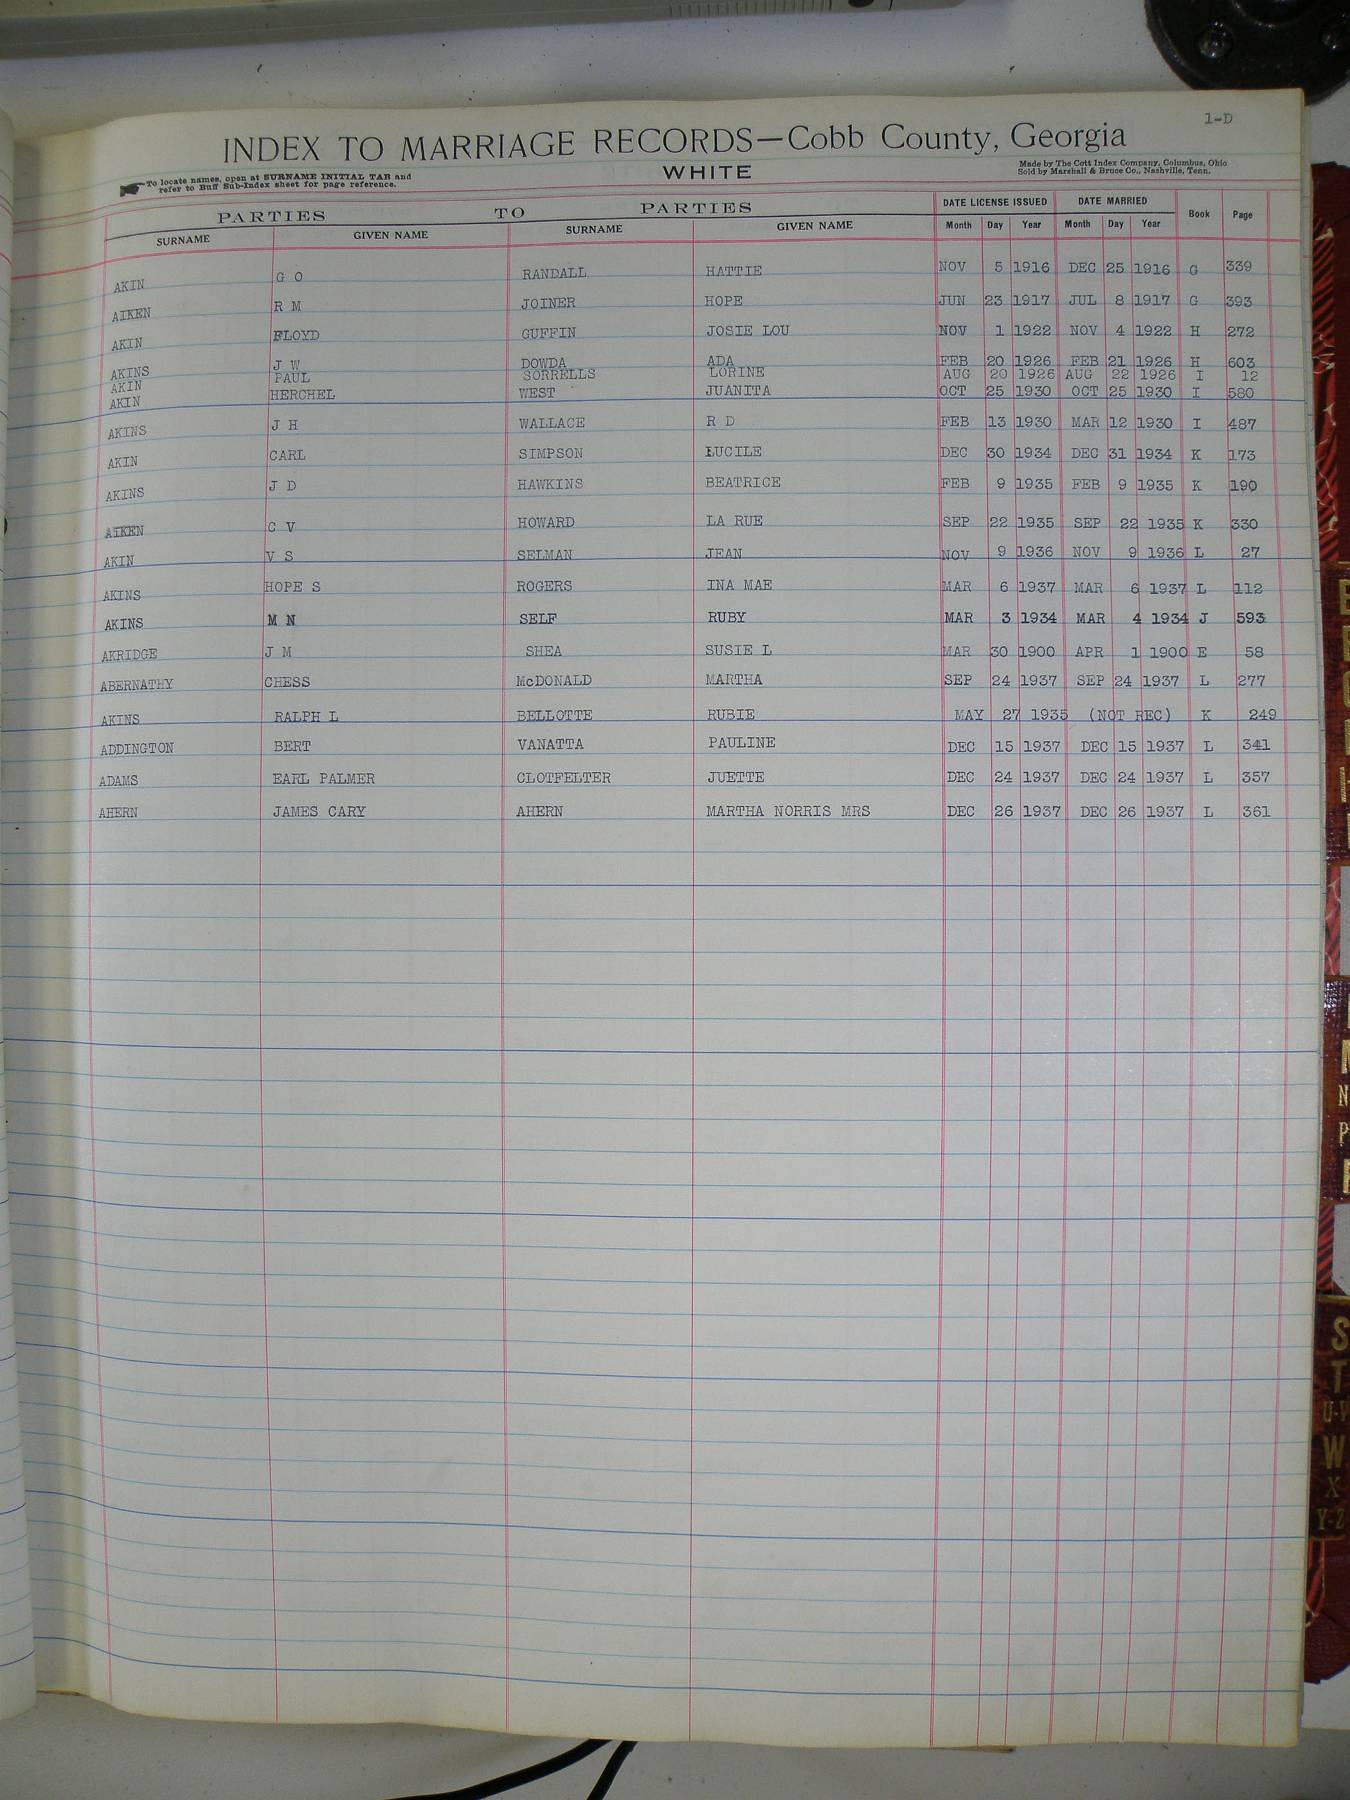 1-D
INDEX TO MARRIAGE RECORDS—Cobb County, Georgia
To locate names, open at SURNAME INITIAL TAB and
refer to Buff Sub-Index sheet for page reference.
WHITE
Made by The Cott Index Company, Columbus, Ohio
Sold by Marshall & Bruce Co., Nashville, Tenn.
PARTIES TO PARTIES DATE LICENSE ISSUED DATE MARRIED Book Page
SURNAME GIVEN NAME SURNAME GIVEN NAME Month Day Year Month Day Year
AKIN G O RANDALL HATTIE NOV 5 1916 DEC 25 1916 G 339
AIKEN R M JOINER HOPE JUN 23 1917 JUL 8 1917 G 393
AKIN FLOYD GUFFIN JOSIE LOU NOV 1 1922 NOV 4 1922 H 272
AKINS J W DOWDA ADA FEB 20 1926 FEB 21 1926 H 603
AKIN PAUL SORRELLS LORINE AUG 20 1926 AUG 22 1926 I 12
AKIN HERCHEL WEST JUANITA OCT 25 1930 OCT 25 1930 I 580
AKINS J H WALLACE R D FEB 13 1930 MAR 12 1930 I 487
AKIN CARL SIMPSON LUCILE DEC 30 1934 DEC 31 1934 K 173
AKINS J D HAWKINS BEATRICE FEB 9 1935 FEB 9 1935 K 190
AIKEN C V HOWARD LA RUE SEP 22 1935 SEP 22 1935 K 330
AKIN V S SELMAN JEAN NOV 9 1936 NOV 9 1936 L 27
AKINS HOPE S ROGERS INA MAE MAR 6 1937 MAR 6 1937 L 112
AKINS M N SELF RUBY MAR 3 1934 MAR 4 1934 J 593
AKRIDGE J M SHEA SUSIE L MAR 30 1900 APR 1 1900 E 58
ABERNATHY CHESS McDONALD MARTHA SEP 24 1937 SEP 24 1937 L 277
AKINS RALPH L BELLOTTE RUBIE MAY 27 1935 (NOT REC) K 249
ADDINGTON BERT VANATTA PAULINE DEC 15 1937 DEC 15 1937 L 341
ADAMS EARL PALMER CLOTFELTER JUETTE DEC 24 1937 DEC 24 1937 L 357
AHERN JAMES CARY AHERN MARTHA NORRIS MRS DEC 26 1937 DEC 26 1937 L 361
N
P
S
T
W
X
Y-Z